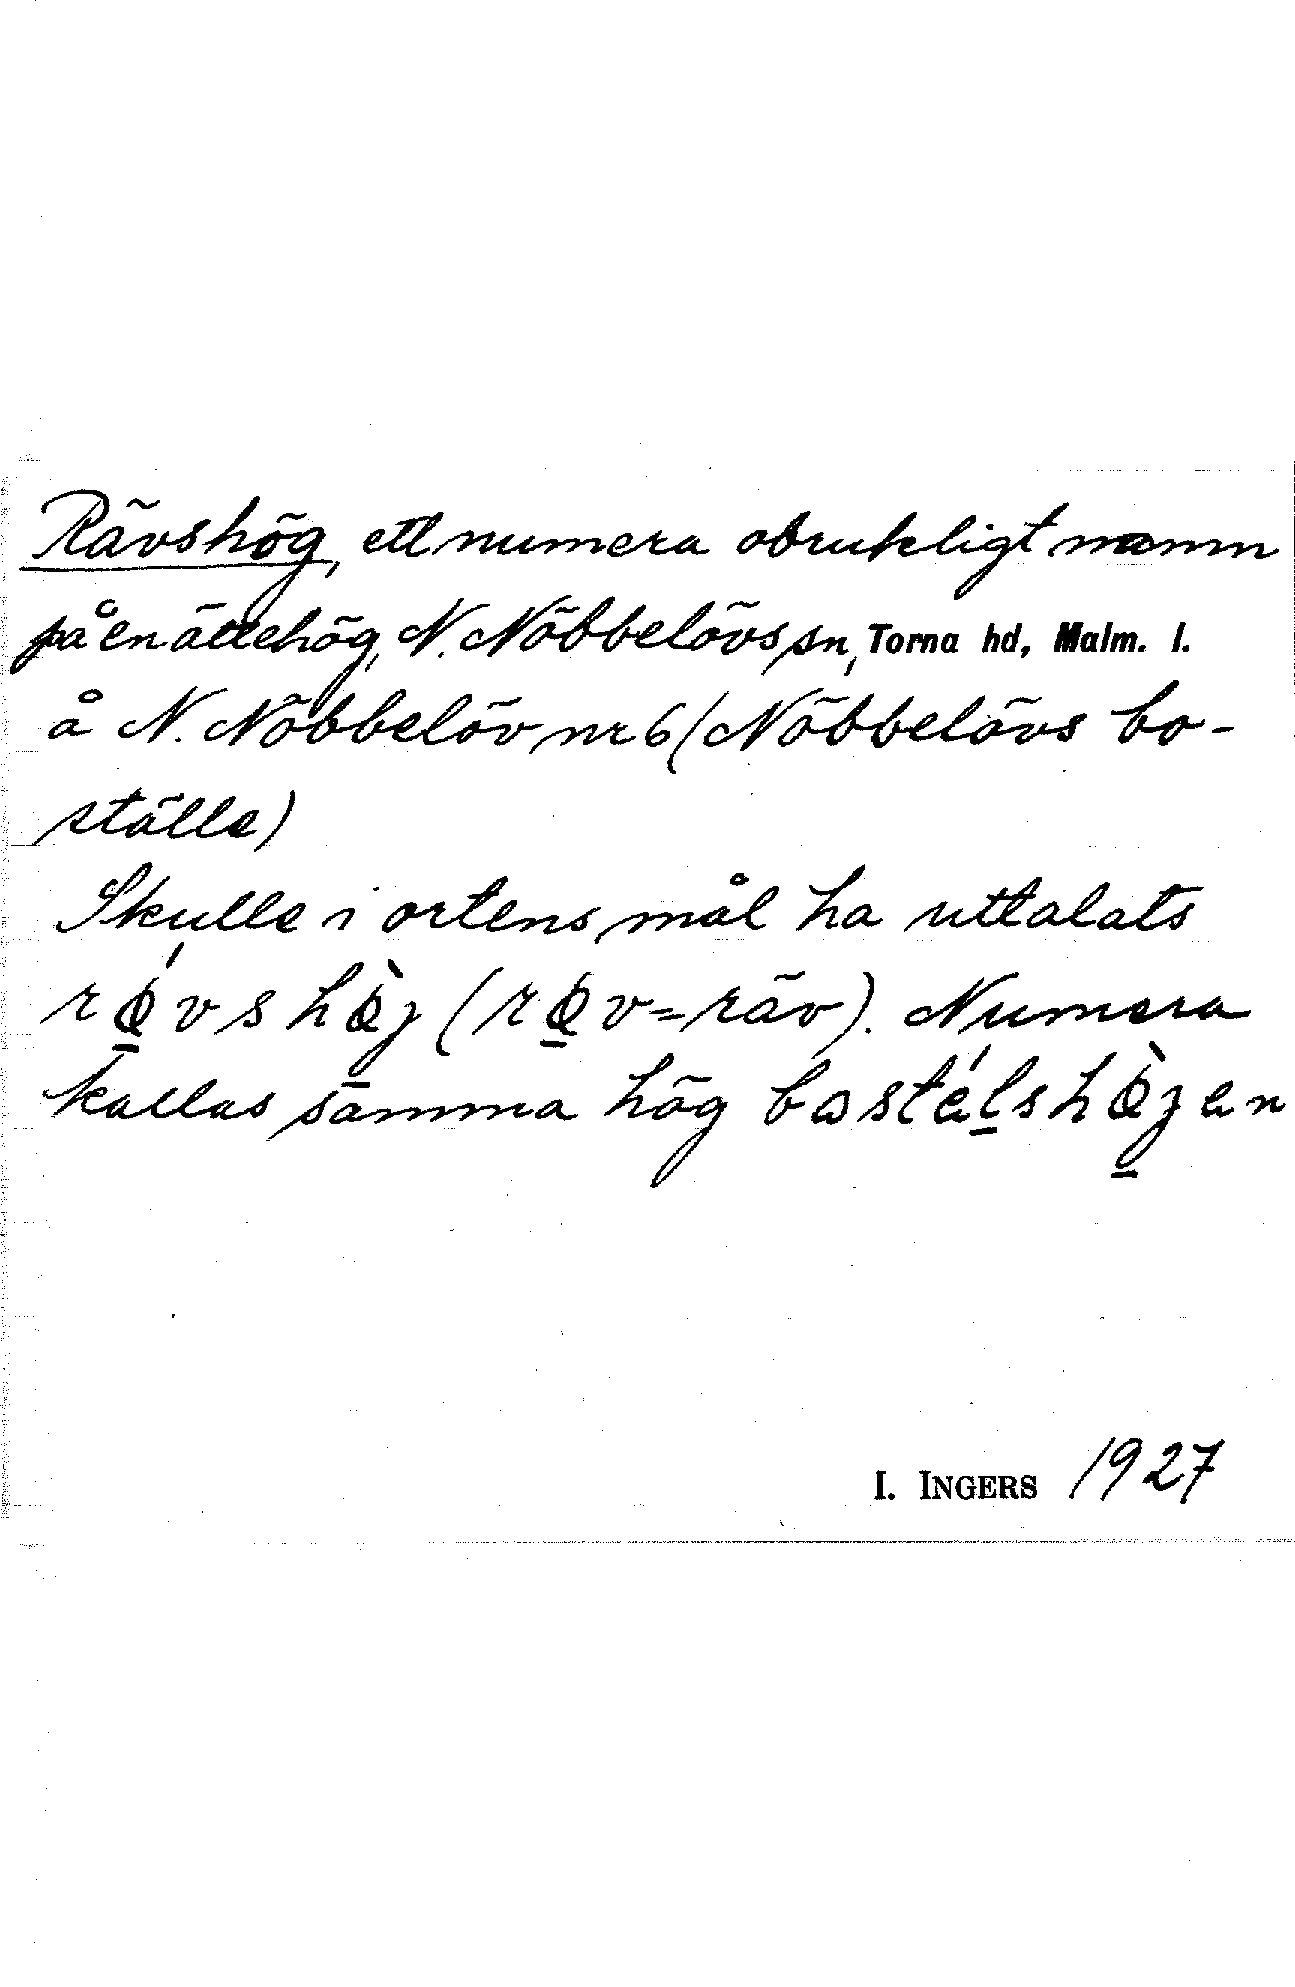 Rävshög, ett numera obrukligt namn
på en ättehög, N. Nöbbelövs sn, Torna hd, Malm. l.
å N. Nöbbelöv nr 6 (Nöbbelövs bo-
ställe)
Skulle i ortens mål ha uttalats
(= räv). Numera
kallas samma hög
I. INGERS 1927